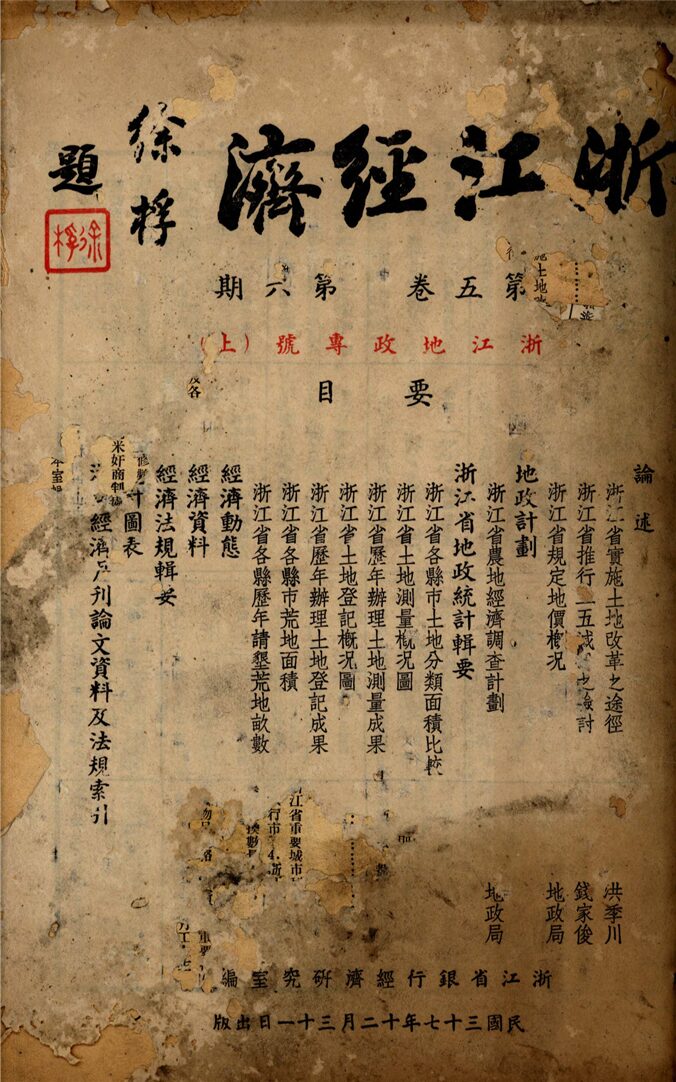 浙江經濟
徐桴
題
徐桴
第五卷 第六期
浙江地政專號（上）
要目
論述
浙江省實施土地改革之途徑 洪季川
浙江省推行二五減之檢討 錢家俊
浙江省規定地價概況 地政局
地政計劃
浙江省農地經濟調查計劃 地政局
浙江省地政統計輯要
浙江省各縣市土地分類面積比較
浙江省土地測量概況圖
浙江省歷年辦理土地測量成果
浙江省土地登記概況圖
浙江省歷年辦理土地登記成果
浙江省各縣市荒地面積
浙江省各縣歷年請墾荒地畝數
經濟動態
經濟資料
經濟法規輯要
計圖表
經濟月刊論文資料及法規索引
土地
及各
米奸商
江省重要城市
行市
換數
重要
浙江省銀行經濟研究室編
民國三十七年十二月三十一日出版